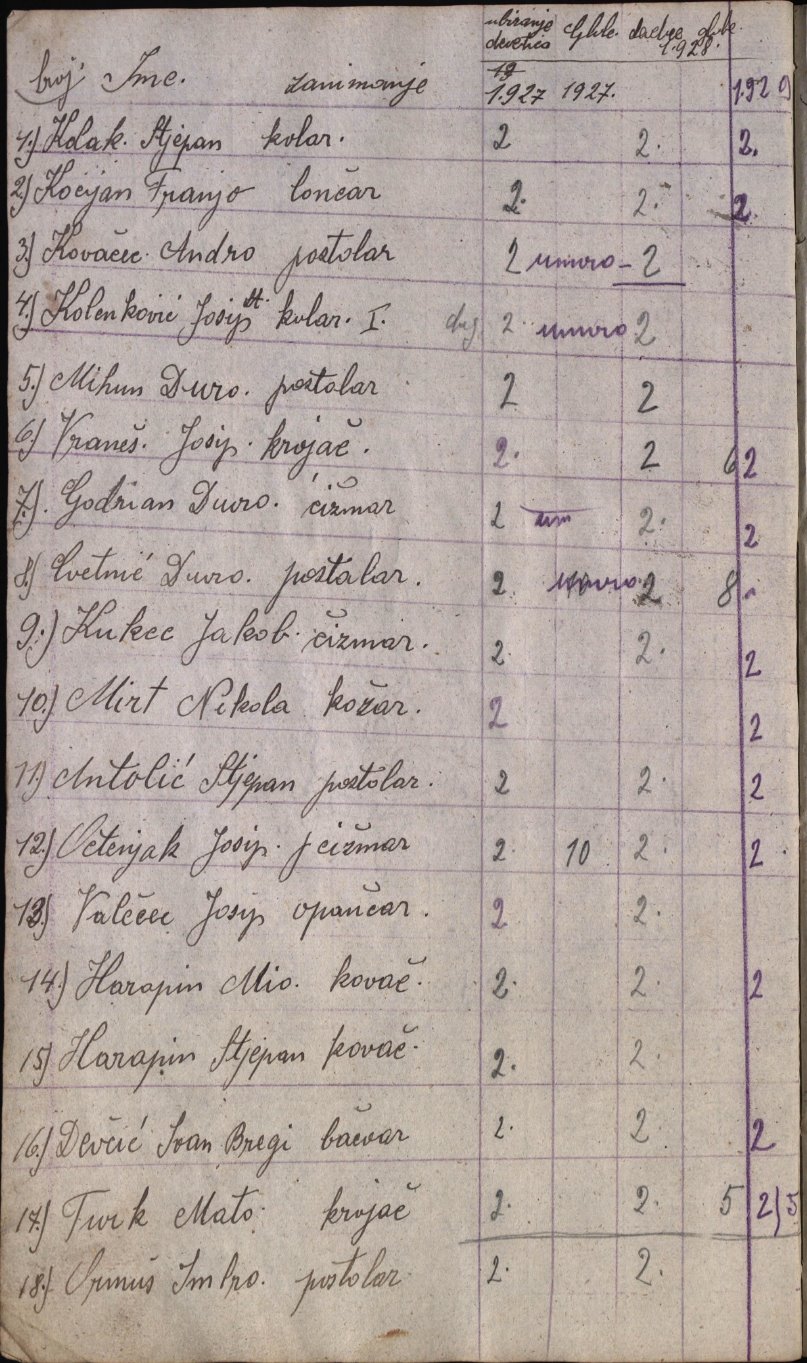 ubiranje Globe. dadbe globe
devetica 1928.
broj Ime. zanimanje 19
1.927 1927. 1.929
1.) Kolak. Stjepan kolar. 2 2. 2.
2.) Kocijan Franjo lončar 2. 2. 2.
3.) Kovačec. Andro postolar 2 umro - 2
4.) Kolenković Josip st. kolar. I. 2 umro 2
5.) Mihun Đuro. postolar 2 2
6.) Vraneš. Josip. krojač. 2. 2 6 2
7.). Godrian Đuro. čižmar 2 um 2. 2
8.) Cvetnić Đuro. postalar. 2 umro 2 8 -
9.) Kukec Jakob. čizmar. 2 2. 2
10.) Mirt Nikola kožar. 2 2
11.) Antolić Stjepan postolar. 2 2. 2
12.) Josip. čižmar 2. 10 2. 2.
13.) Valečec Josip opančar. 2 2.
14.) Harapin Mio. kovač. 2. 2. 2
15.) Harapin Stjepan kovač. 2. 2.
16.) Devčić Ivan Bregi bačvar 2. 2. 2
17.) Turk Mato. krojač 2. 2. 5 2)5
18.) Ormuš Imbro. postolar. 2. 2.